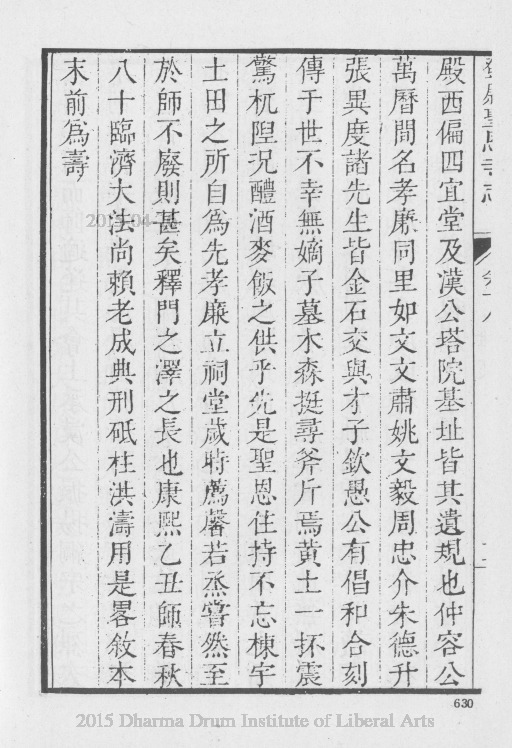 殿西偏四宜堂及漢公塔院基址皆其遺規也仲容公
萬曆間名孝廉同里如文文肅姚文毅周忠介朱德升
張異度諸先生皆金石交與才子欽愚公有倡和合刻
傳于世不幸無嫡子墓木森挺尋斧斤焉黃土一抔震
驚杌隉況醴酒麥飯之供乎先是聖恩住持不忘棟宇
土田之所自爲先孝廉立祠堂歲時薦馨若烝嘗然至
於師不廢則甚矣釋門之澤之長也康熙乙丑師春秋
八十臨濟大法尚賴老成典刑砥柱洪濤用是畧敘本
末前爲壽
630
2015 Dharma Drum Institute of Liberal Arts